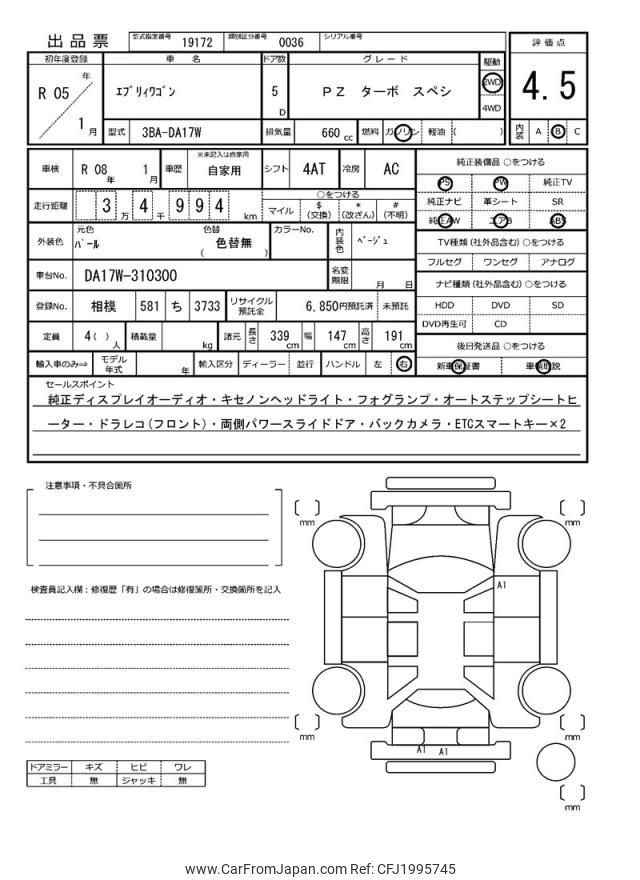 出品票
型式指定番号 19172 類別区分番号 0036 シリアル番号
初年度登録 車 名 ドア数 グレード 駆動 評価点
R 05 年 1 月
エブリィワゴン 5 D PZ ターボ スペシ 2WD 4WD 4.5
型式 3BA-DA17W 排気量 660 cc 燃料 ガソリン 軽油 ( ) 内装 A B C
車検 R 08 年 1 月 車歴 ※未記入は自家用 自家用 シフト 4AT 冷房 AC
走行距離 3 万 4 千 9 9 4 km
○をつける
マイル $ (交換) * (改ざん) # (不明)
外装色 元色 パール 色替 ( 色替無 ) カラーNo. 内装色 ベージュ
車台No. DA17W-310300 名変期限 月 日
登録No. 相模 581 ち 3733 リサイクル預託金 6,850円預託済 未預託
定員 4( ) 人 積載量 kg 諸元 長さ 339 cm 幅 147 cm 高さ 191 cm
輸入車のみ⇒ モデル年式 年 輸入区分 ディーラー 並行 ハンドル 左 右
純正装備品 ○をつける
PS PW 純正TV
純正ナビ 革シート SR
純正AW エアB ABS
TV種類 (社外品含む) ○をつける
フルセグ ワンセグ アナログ
ナビ種類 (社外品含む) ○をつける
HDD DVD SD
DVD再生可 CD
後日発送品 ○をつける
新車保証書 車輌取説
セールスポイント
純正ディスプレイオーディオ・キセノンヘッドライト・フォグランプ・オートステップシートヒ
ーター・ドラレコ(フロント)・両側パワースライドドア・バックカメラ・ETCスマートキー×2
注意事項・不具合箇所
検査員記入欄：修復歴「有」の場合は修復箇所・交換箇所を記入
ドアミラー キズ ヒビ ワレ
工具 無 ジャッキ 無
mm
mm
A1
mm
mm
A1 A1
mm
www.CarFromJapan.com Ref: CFJ1995745